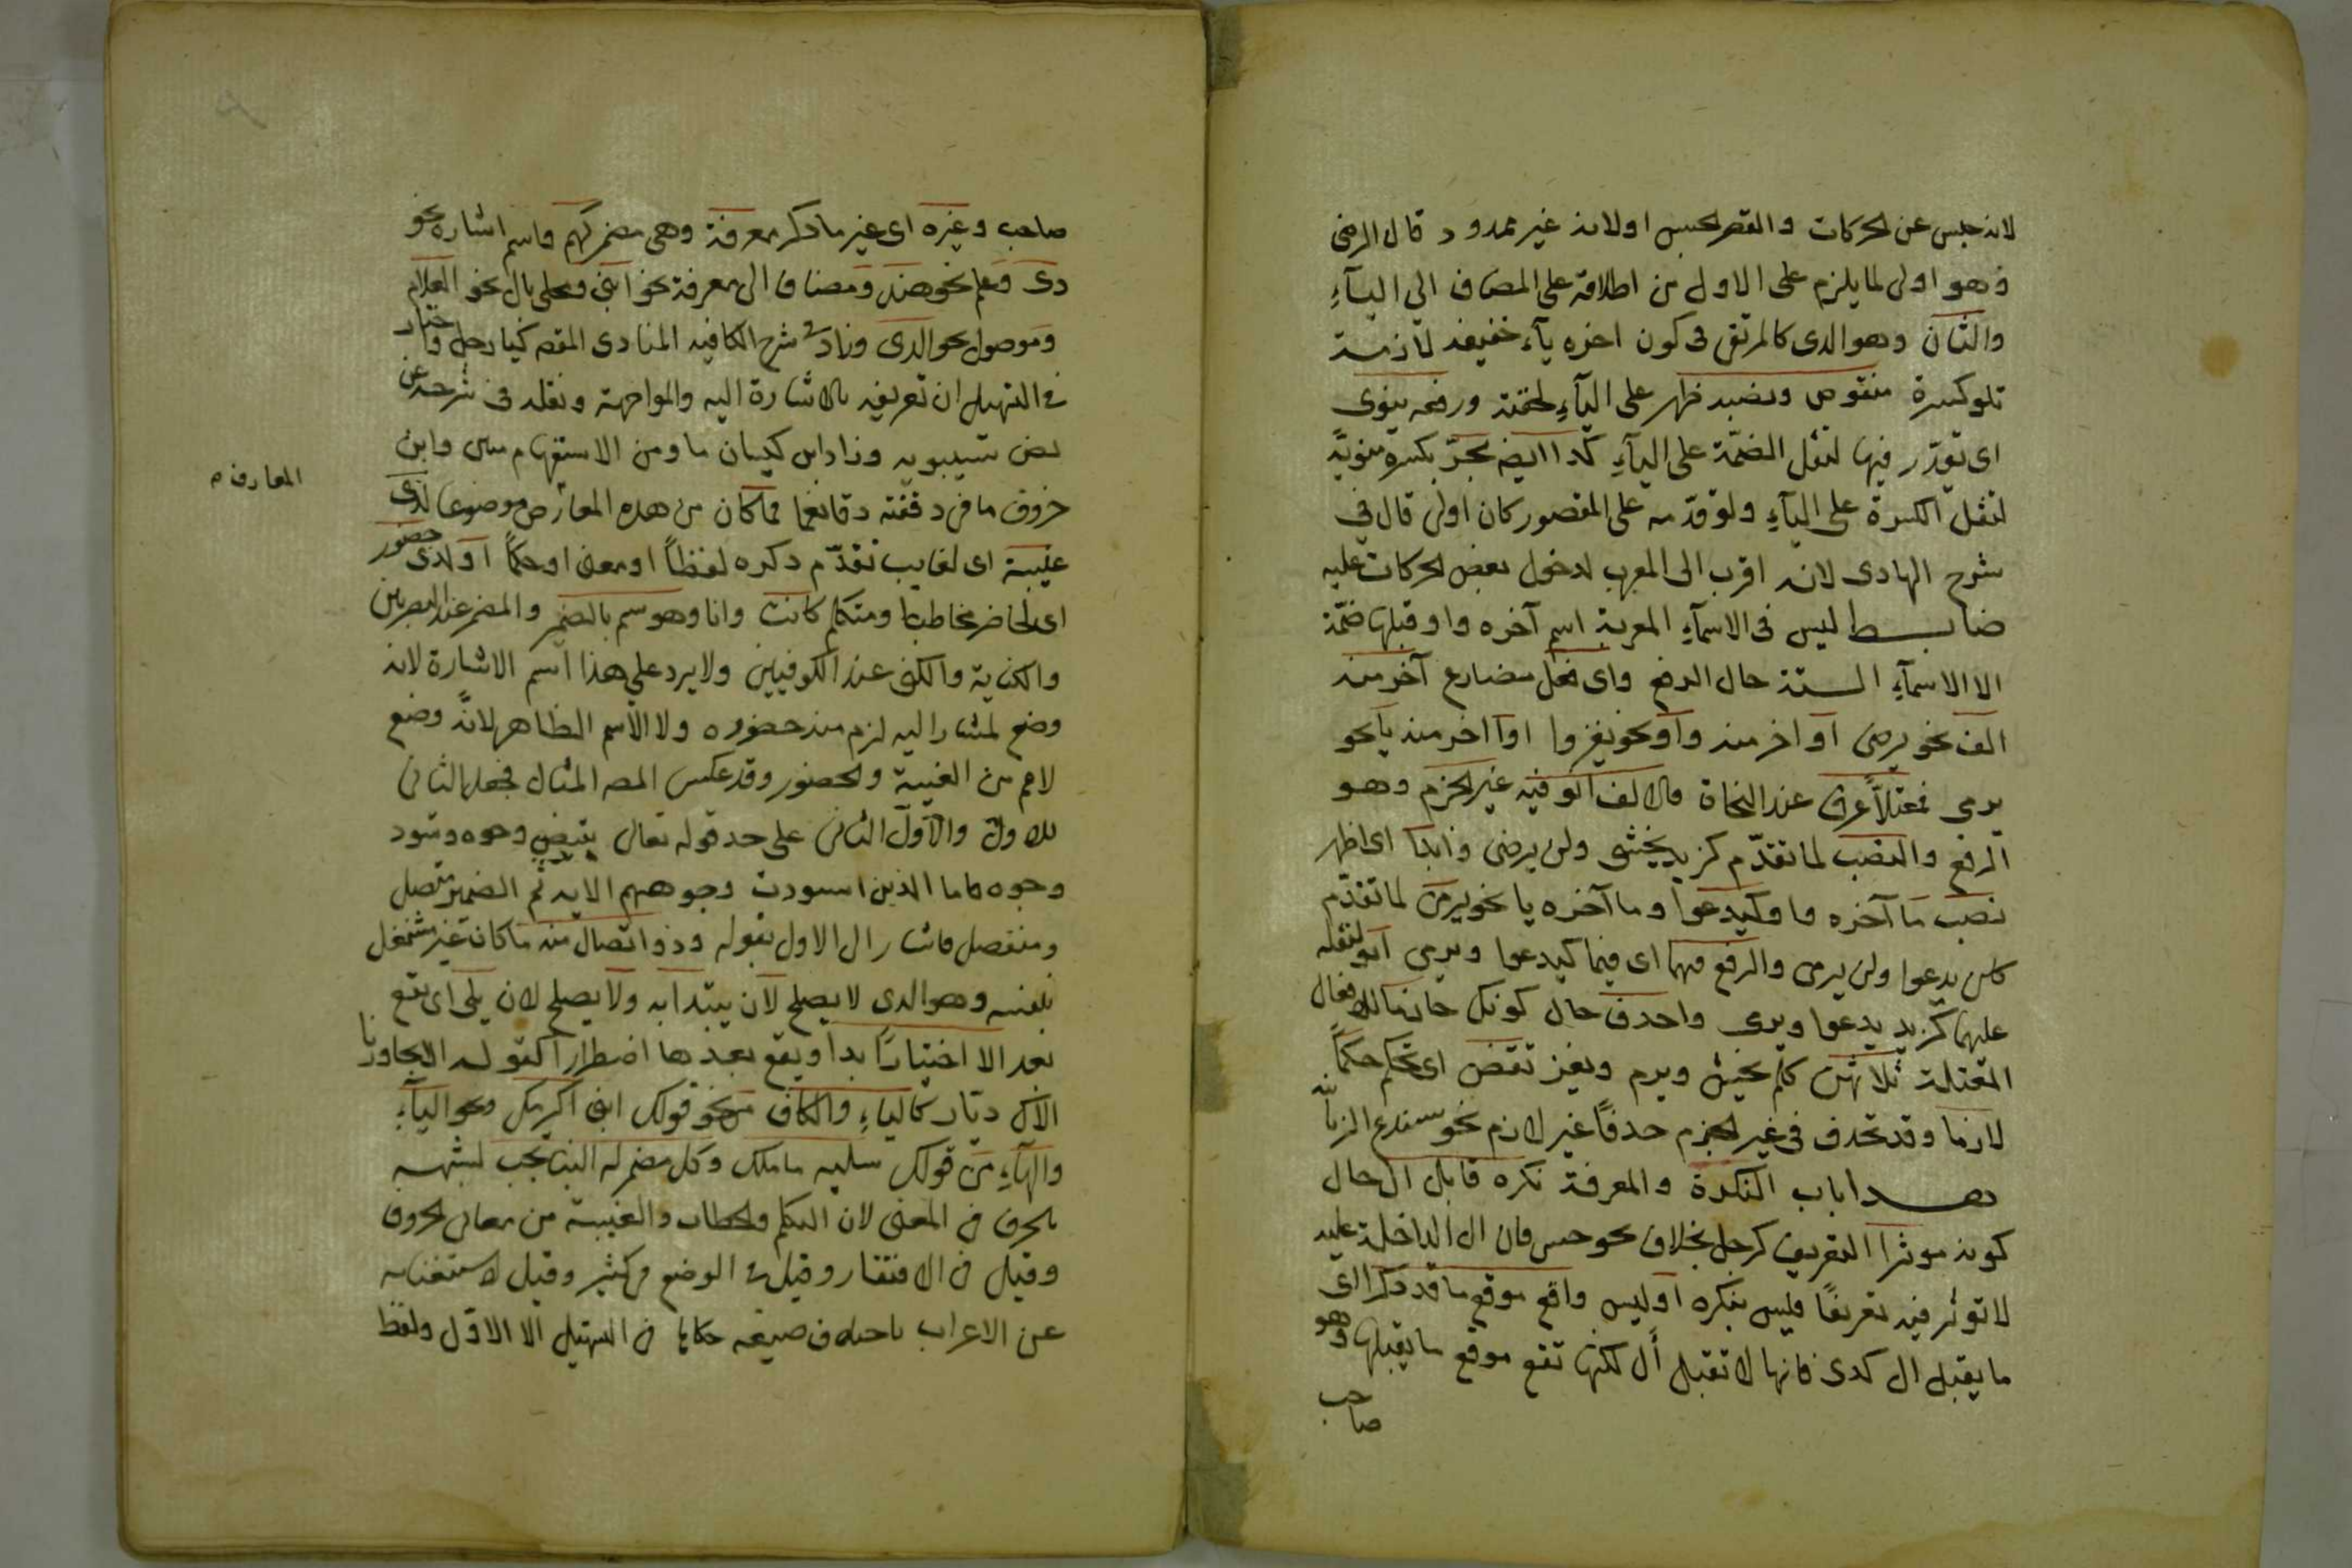 لانه حبس عن الحركات والقصر الحبس اولانه غير ممدود قال الرضى
وهو اولى لما يلزم على الاول من اطلاقه على المضاف الى اليآءِ
والثانى وهو الدى كالمرتقى فى كون اخره يآء خفيفه لازمة
تلو كسرة منقوص ونصبه ظهر على اليآءِ لخفته ورفعه ينوى
اى يقدّر فيها لثقل الضمّة على اليآءِ كدا ايضه يجرّ بكسرة منويّة
لثقل الكسرة على اليآءِ ولو قدّمه على المقصور كان اولى قال فى
شرح الهادى لانه اقرب الى المعرب لدخول بعض الحركات عليه
ضابط ليس فى الاسمآءِ المعربة اسم آخره واو قبلها ضمّة
الا الاسمآءِ الستة حال الرفع واى فعل مضارع آخر منه
الف نحو يرضى او اخر منه واو نحو يغزوا او اخر منه يآ نحو
يرمى فمعتلاً عرف عند النحاة فالالف انو فيه غير الجزم وهو
الرفع والنصب لما تقدّم كزيد يخشى ولن يرضى وابدا اى اظهر
نصب ما آخره واو كيدعوا وما آخره يا نحو يرمى لما تقدّم
كلن يدعوا ولن يرمى والرفع فيهما اى فيما كيدعوا ويرمى انو لثقله
عليهما كزيد يدعوا ويرمى واحدف حال كونك جازما للافعال
المعتلة ثلاثهن كلم يخش ويرم ويغز تقض اى تحكم حكماً
لازما وقد تحدف فى غير الجزم حدفاً غير لازم نحو سندع الزبانية
هدا باب النكرة والمعرفة نكره قابل ال حال
كونه موثرا التعريف كرجل بخلاف نحو حسن فان ال الداخلة عليه
لا توثر فيه تعريفًا فليس بنكره او ليس واقع موقع ما قد دكرا اى
ما يقبل ال كدى فانها لا تقبل أل لكنها تقع موقع ما يقبلها وهو
صاحب
صاحب وغيره اى غير ما دكر معرفة وهى مضمر كهم واسم اشاره نحو
دى وعلم نحو هند ومضاف الى معرفة نحو ابنى ومحلى بال نحو الغلام
وموصول نحو الدى وزاد فى شرح الكافيه المنادى المقصه كيا رجل واختار
فى التسهيل ان تعريفه بالاشارة اليه والمواجهة ونقله فى شرحه عن
نص سيبويه وزاد ابن كيسان ما ومن الاستفهاميتين وابن
خروف ما فى دققته دقا نعما فما كان من هده المعارف موضوعا لدى
المعارف
غيبة اى لغايب تقدّم دكره لفظاً او معنى او حكماً او لدى حضور
اى لحاضر مخاطبا ومتكلم كانت وانا وهو سم بالضمير والمضمر عند البصريين
والكناية والمكنى عند الكوفيين ولا يرد على هذا اسم الاشارة لانه
وضع لمشار اليه لزم منه حضوره ولا الاسم الظاهر لانّه وضع
لاعم من الغيبة والحضور وقد عكس المصه المثال فجعل الثانى
للاول والاول الثانى على حد قوله تعالى يوم تبيض وجوه وتسود
وجوه فاما الذين اسودت وجوههم الايه ثم الضمير متصل
ومنفصل فاشار الى الاول بقوله وذو اتصال منه ما كان غير مشتغل
بنفسه وهو الدى لا يصلح لان يبتدا به ولا يصلح لان يلى اى يقع
بعد الا اختيارًا ابدا ويقع بعدها اضطرارا كقوله الا يجاورنا
الاك ديار كاليآءِ والكاف من نحو قولك ابنى اكرمك ونحو اليآءِ
والهآءِ من قولك سليه ما ملك وكل مضمر له البنا يجب لشبهه
بالحرف فى المعنى لان التكلم والخطاب والغيبة من معانى الحروف
وقيل فى الافتقار وقيل فى الوضع فى كثير وقيل لاستغنايه
عن الاعراب باختلاف صيغه حكاها فى التسهيل الا الاول ولفظ